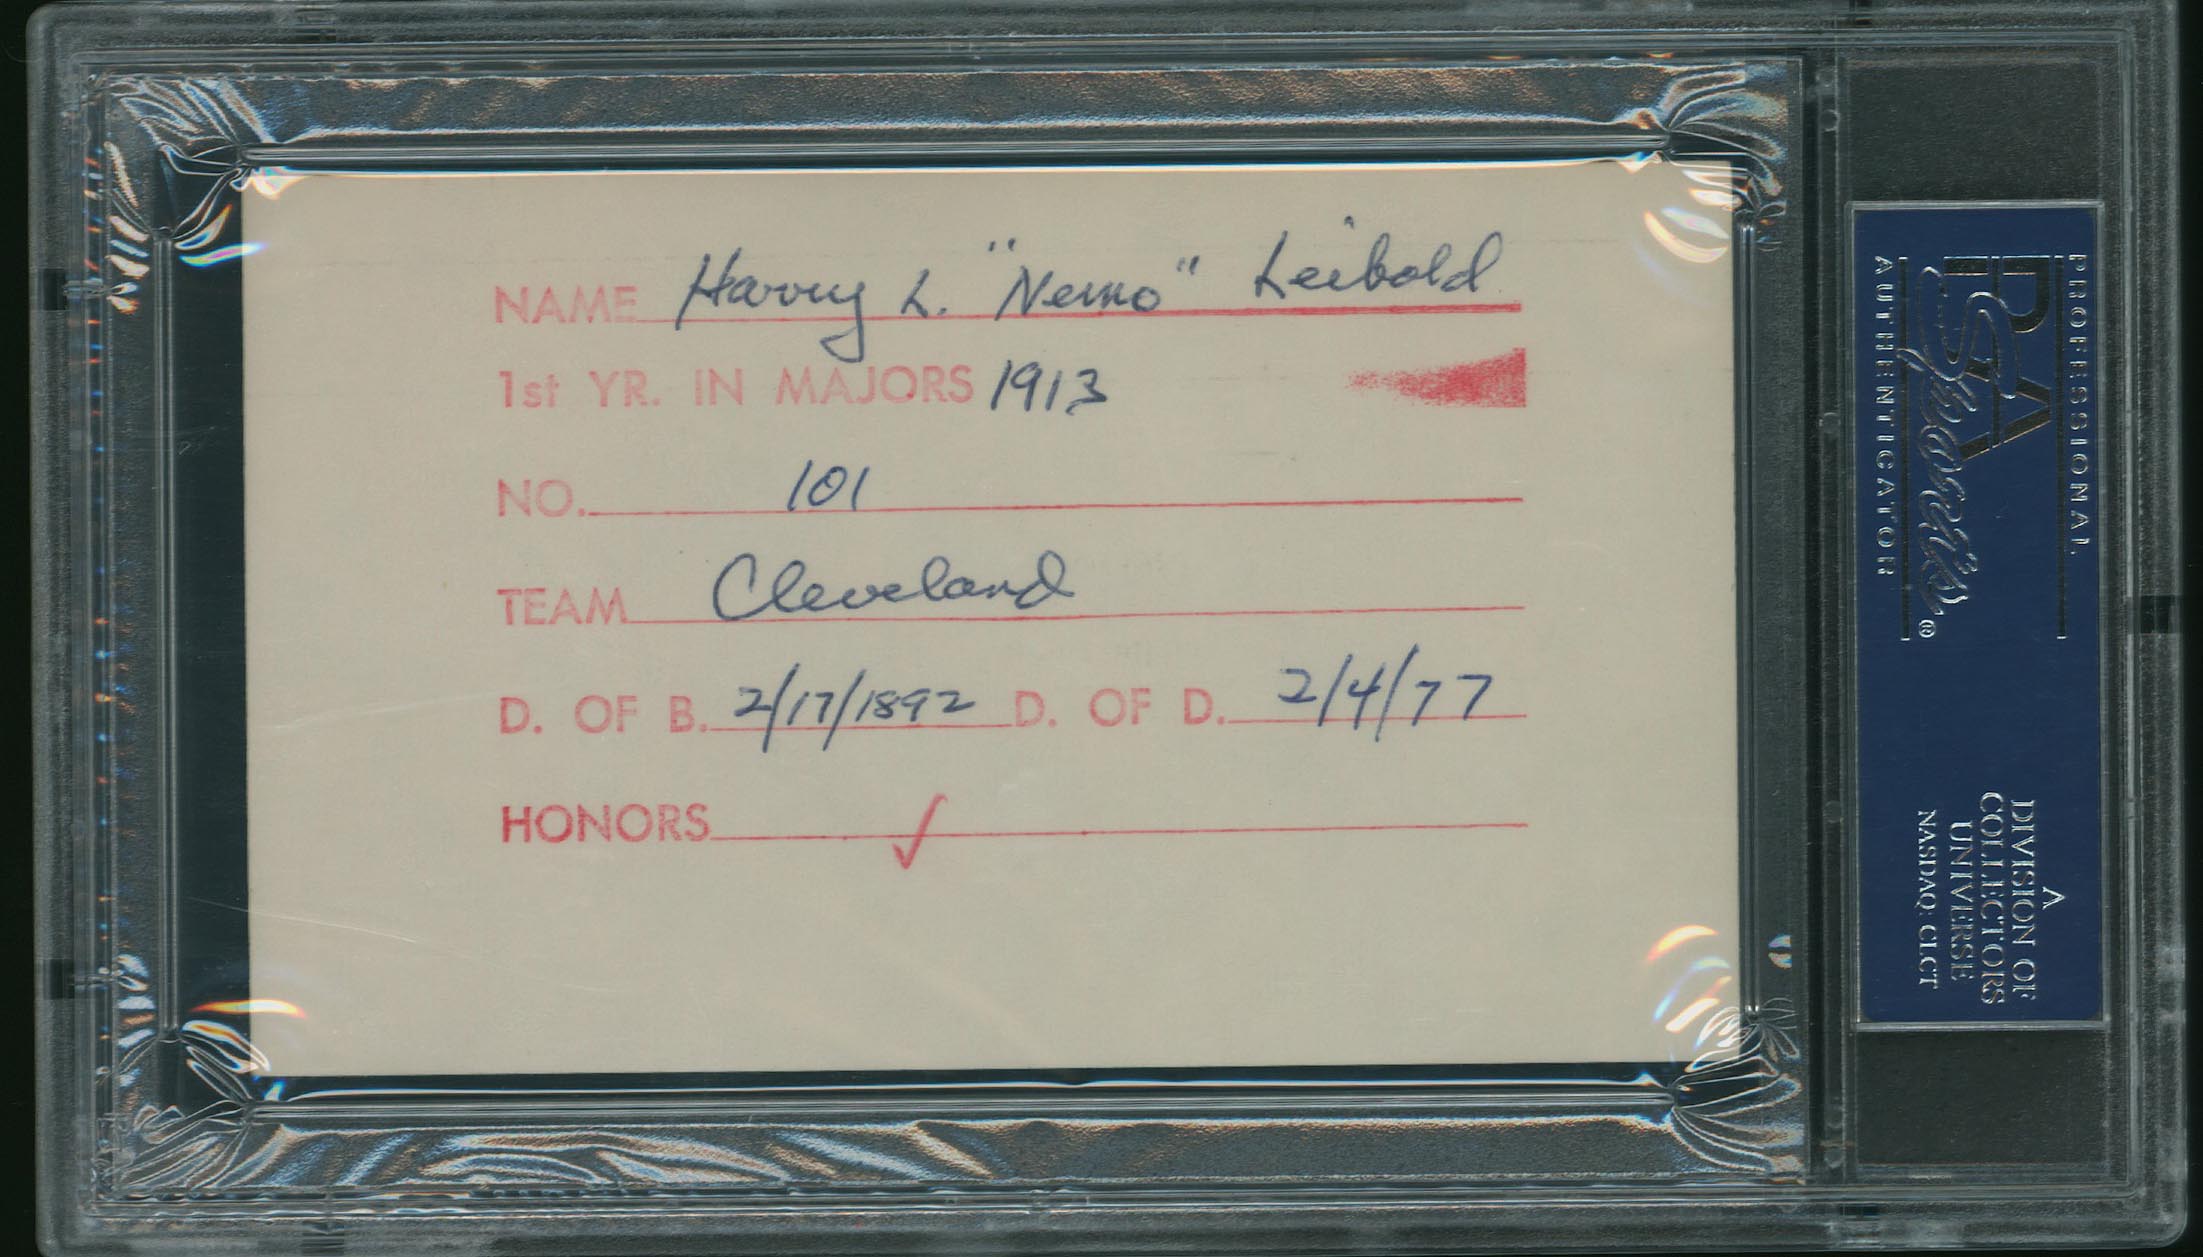 NAME Harry L. "Nemo" Leibold
1st YR. IN MAJORS 1913
NO. 101
TEAM Cleveland
D. OF B. 2/17/1892 D. OF D. 2/4/77
HONORS ✓
PROFESSIONAL
PSA
Sports
AUTHENTICATOR
®
A
DIVISION OF
COLLECTORS
UNIVERSE
NASDAQ: CLCT